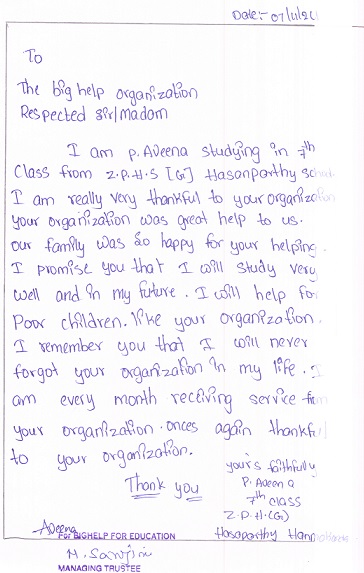 Date:- 07/11/20
To
The big help organization
Respected sir/madam
I am P. Adeena studying in 7th
Class from Z.P.H.S [G] Hasanparthy
I am really very thankful to your organization
your organization was great help to us.
our family was so happy for your helping.
I promise you that I will study very
well and in my future. I will help for
Poor children. like your organization.
I remember you that I will never
forgot your organization in my life. I
am every month receiving service from
your organization. onces again thankful
to your organization.
Thank you
your's faithfully
P. Adeena
7th class
Z.P.H.(G)
Hasaparthy
Adeena
For BIGHELP FOR EDUCATION
MANAGING TRUSTEE